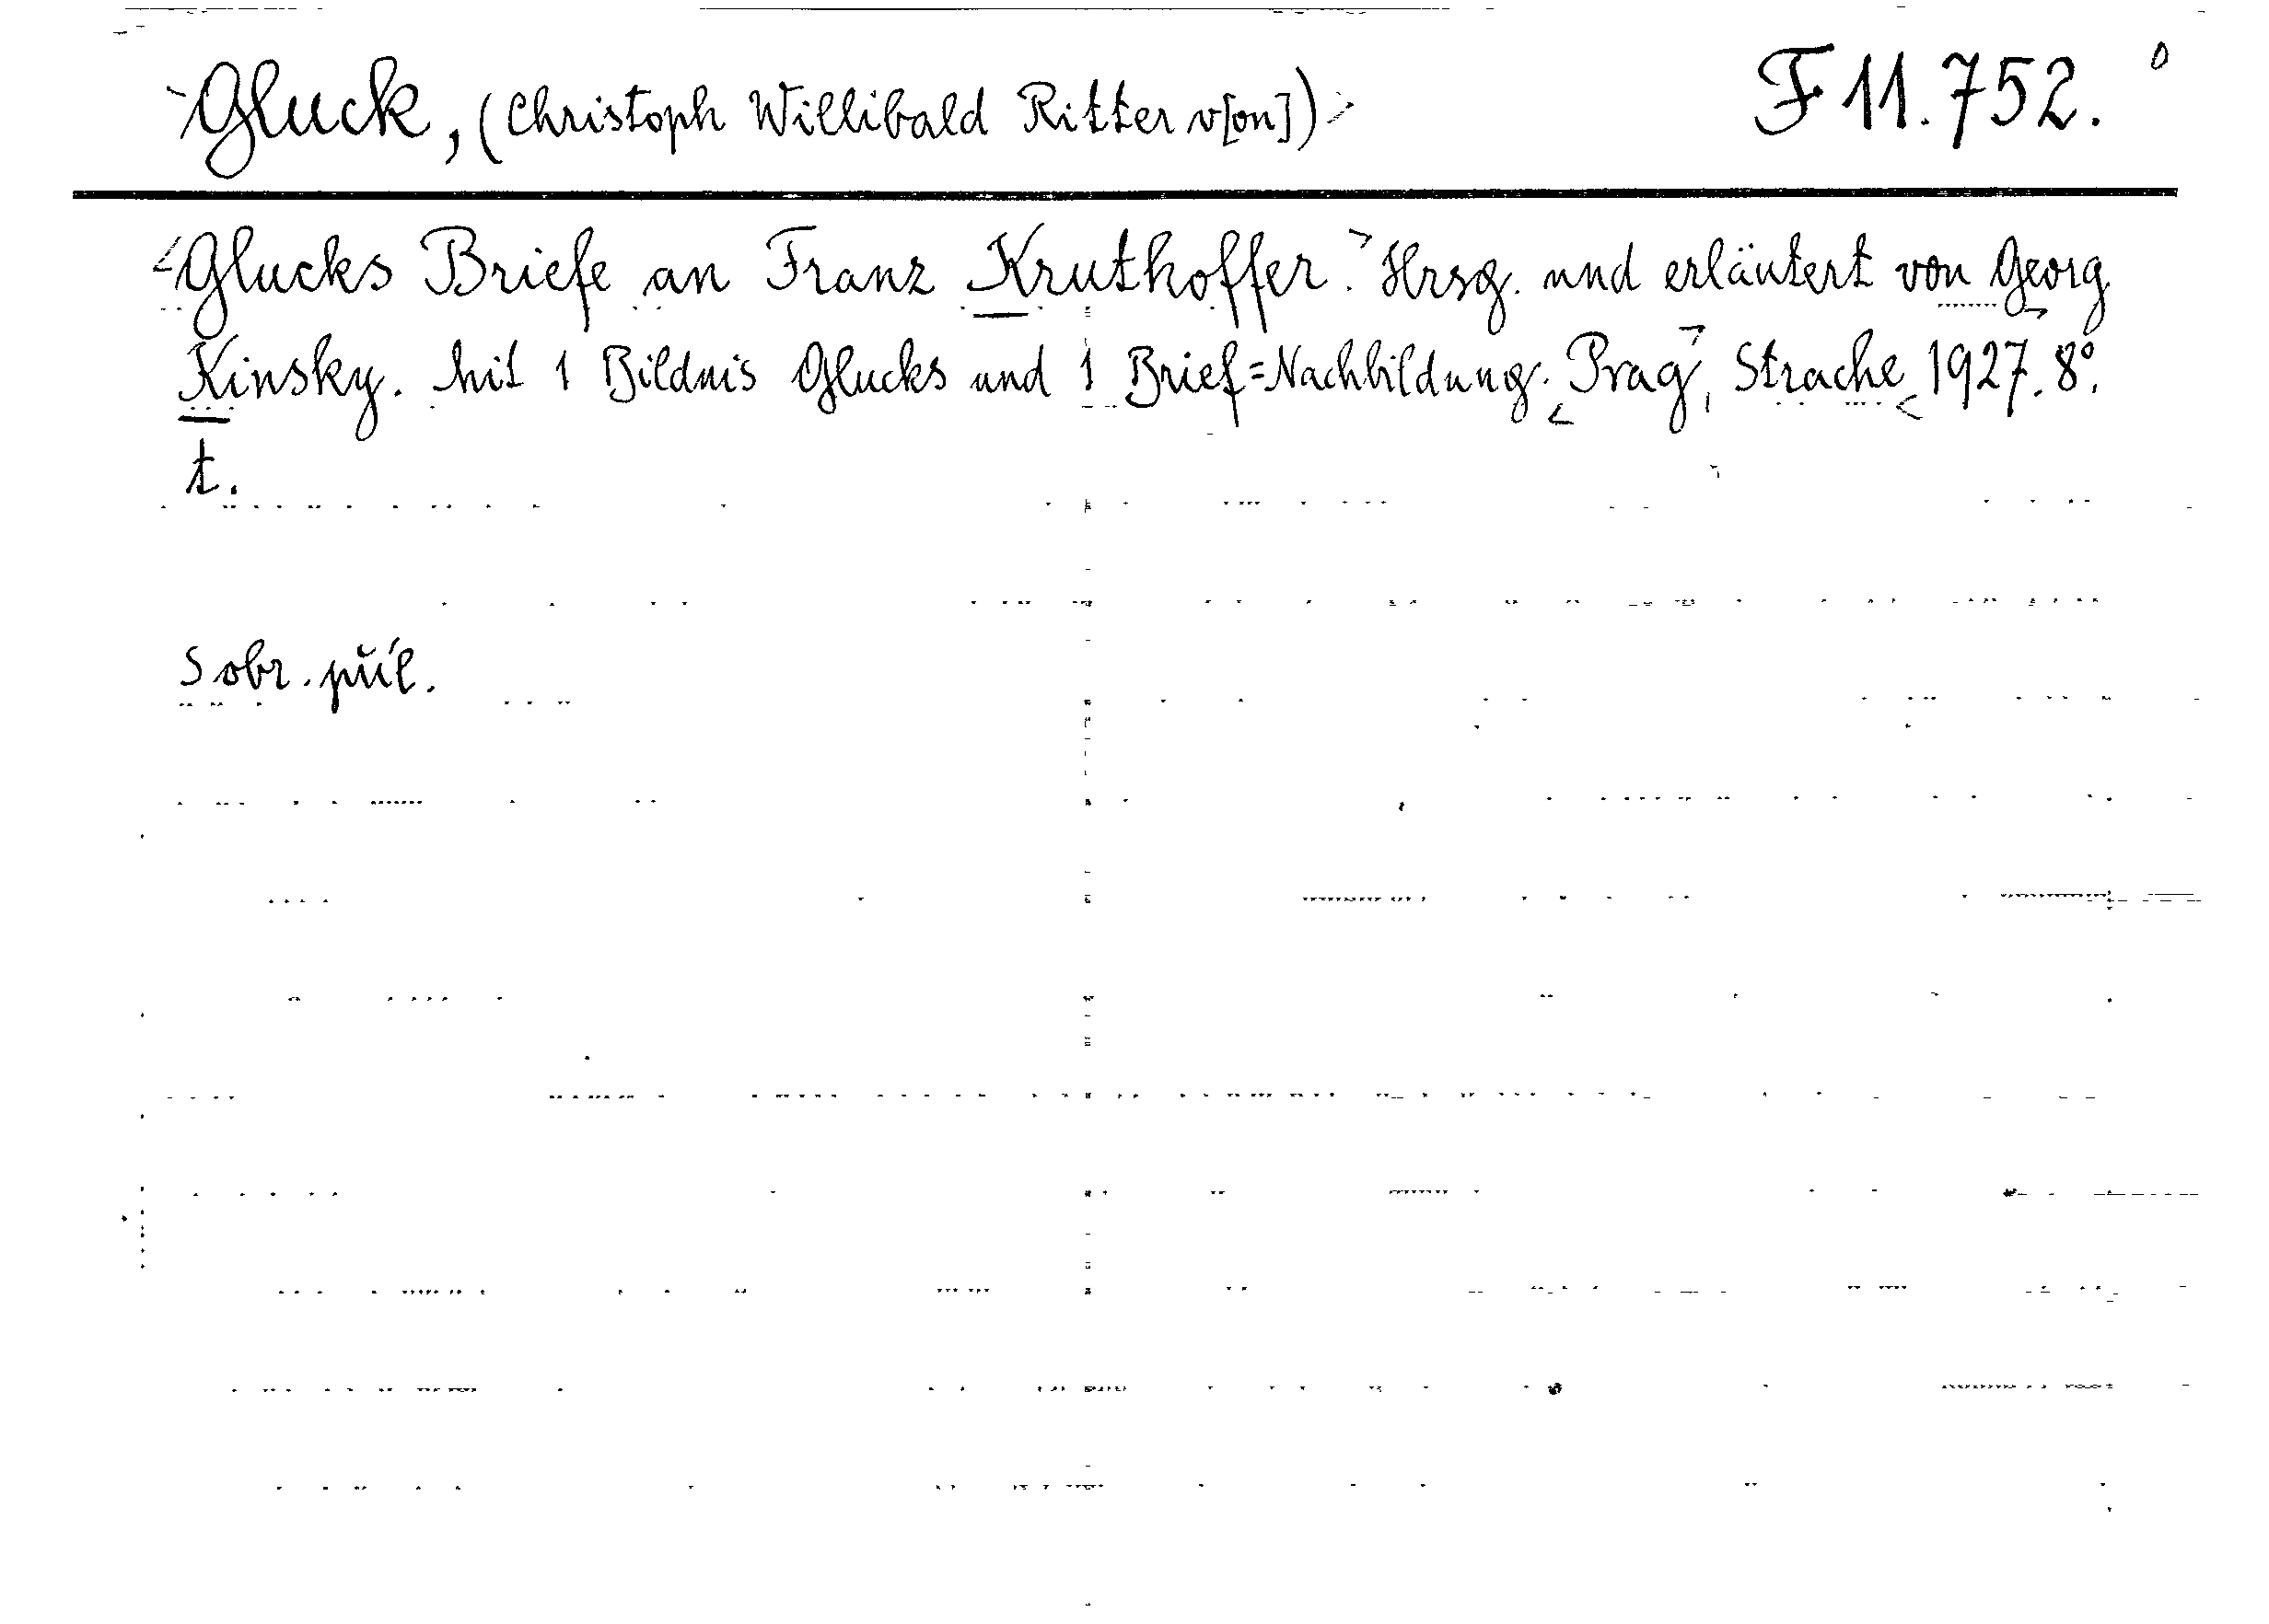 Gluck, (Christoph Willibald Ritter v[on]) F 11.752.
Glucks Briefe an Franz Kruthoffer. Hrsg. und erläutert von Georg
Kinsky. Mit 1 Bildnis Glucks und 1 Brief=Nachbildung. Prag, Strache 1927. 8°.
t.
S obr. příl.